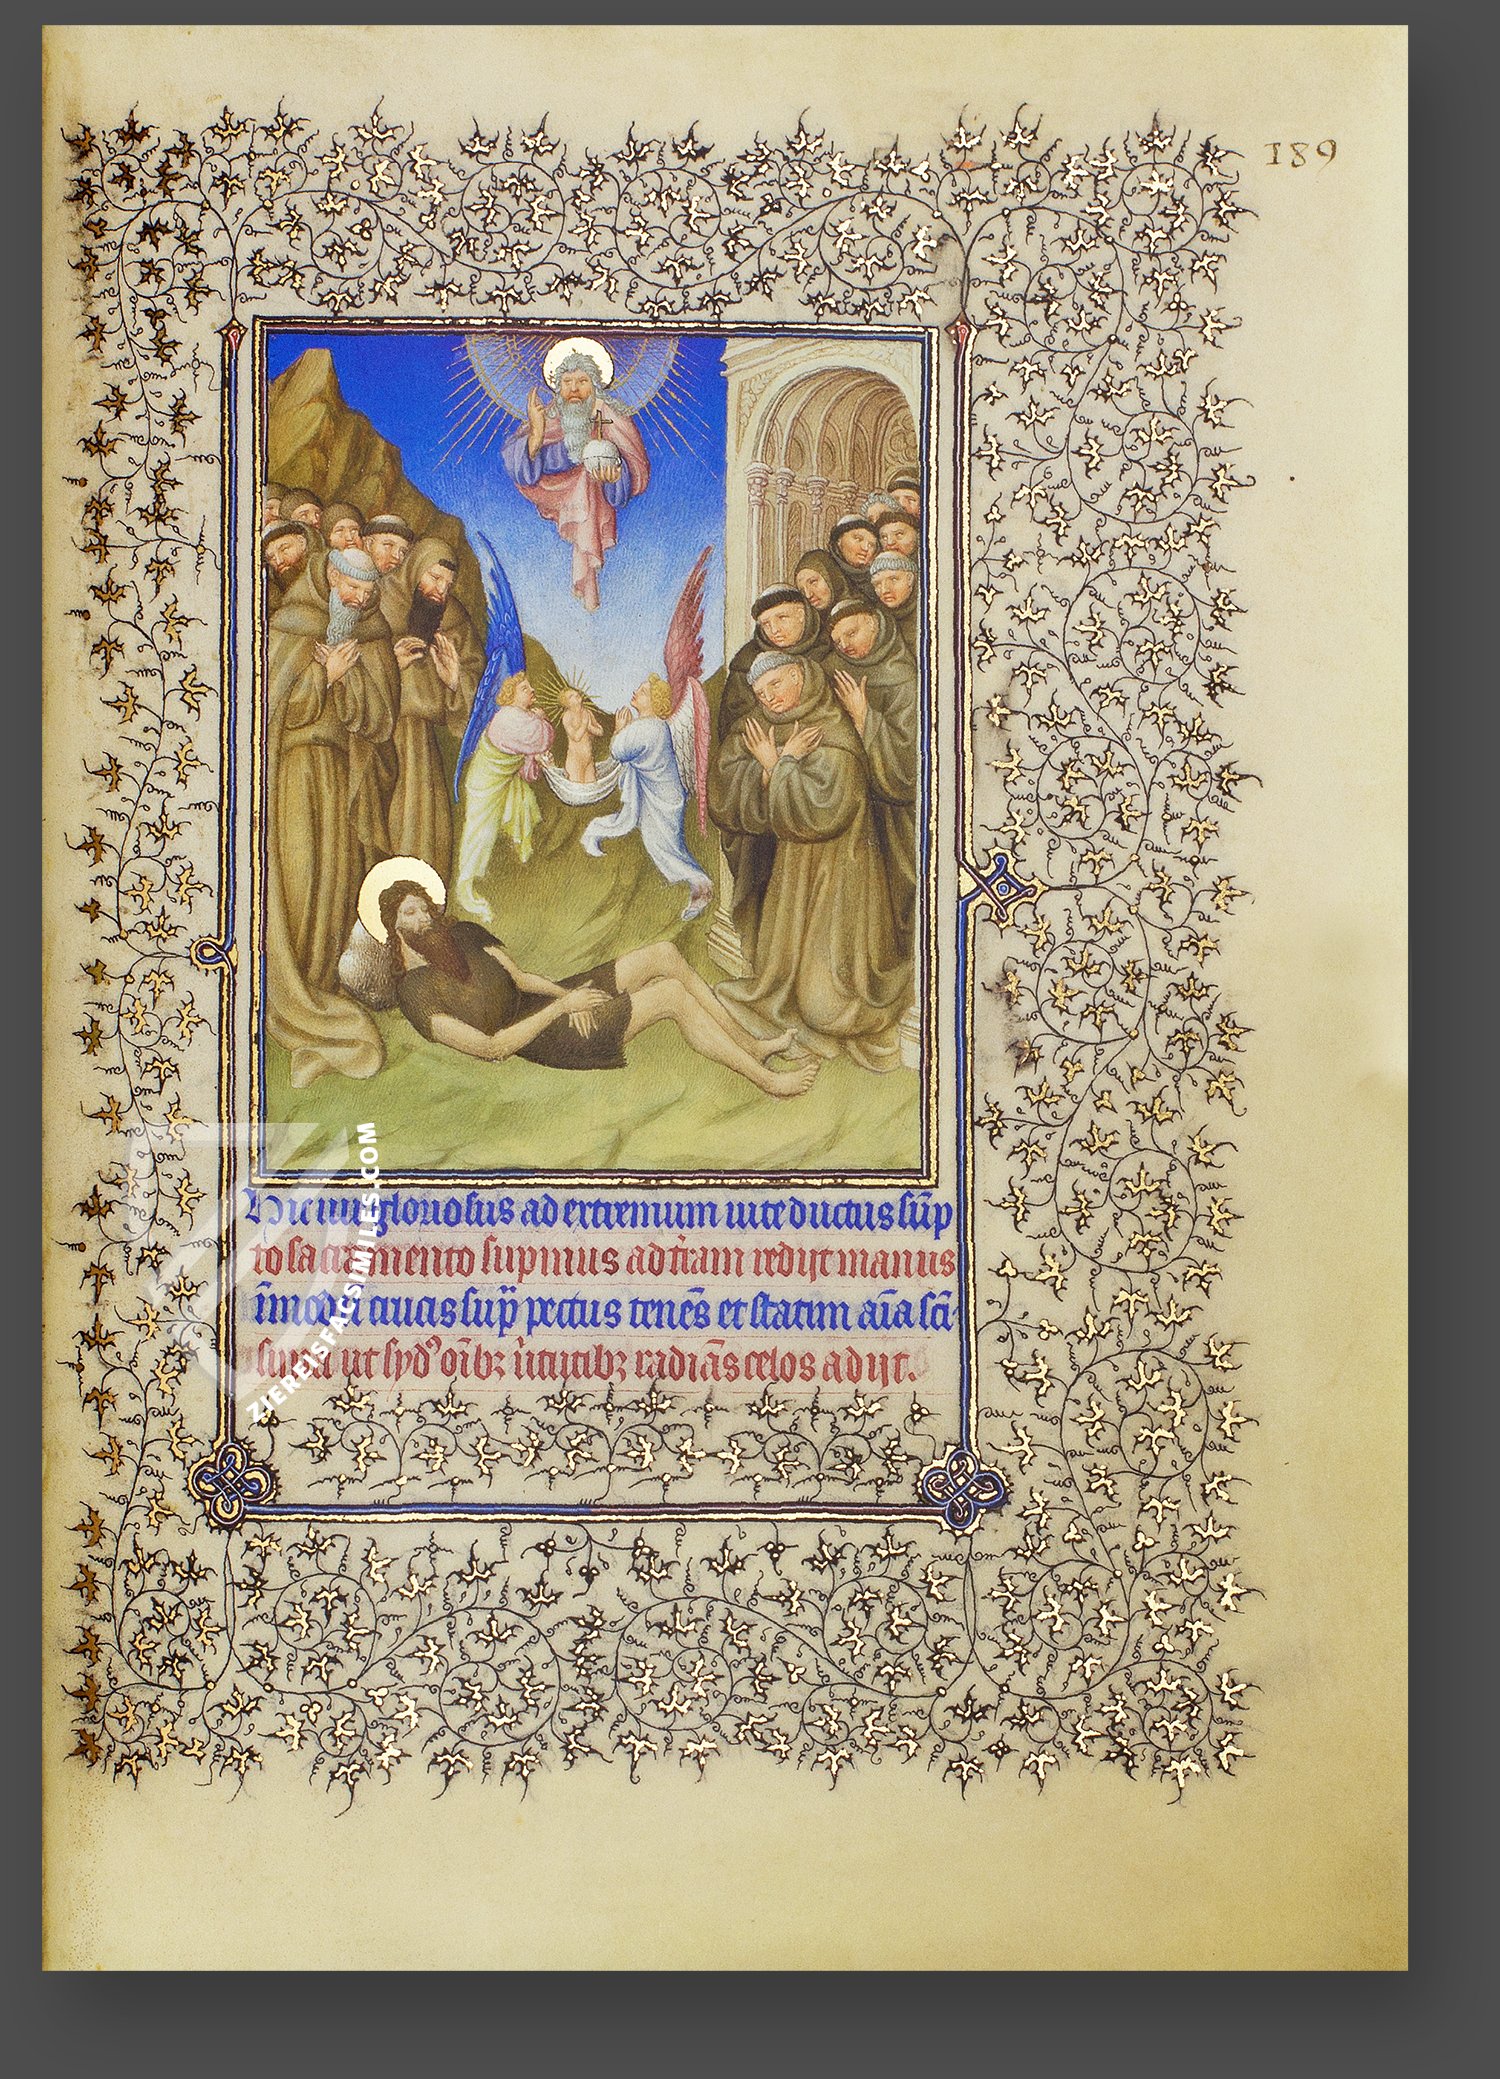 189
Hic uir gloriosus ad extremum uite ductus sūp
to sacramento supinus ad t̄ram redijt manus
ī modū crucis sup̄ pectus tenēs et statim aīa scī
ut syd⁹ oībꝫ radiās celos adijt.
ZIEREISFACSIMILES.COM